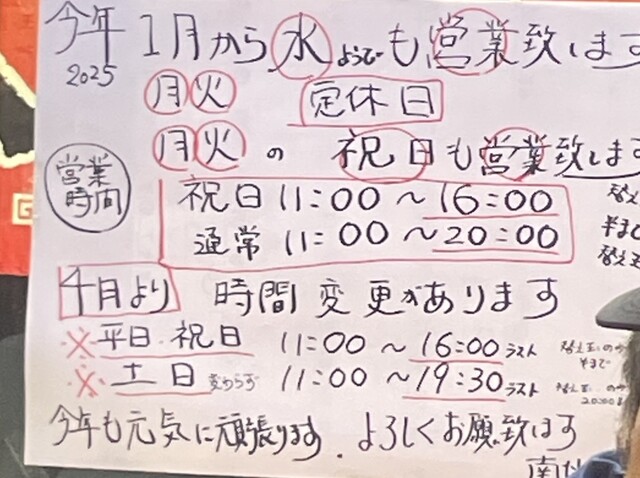 今年 1月から 水 ようびも 営業致します
2025
月 火 定休日
月 火 の 祝日も 営業致します
営業時間
祝日 11:00 〜 16:00
通常 11:00 〜 20:00
替え
半まで
替え玉
4月より 時間 変更があります
※平日 祝日 11:00 〜 16:00 ラスト
※土日 変わらず 11:00 〜 19:30 ラスト
今年も元気に頑張ります. よろしくお願い致します